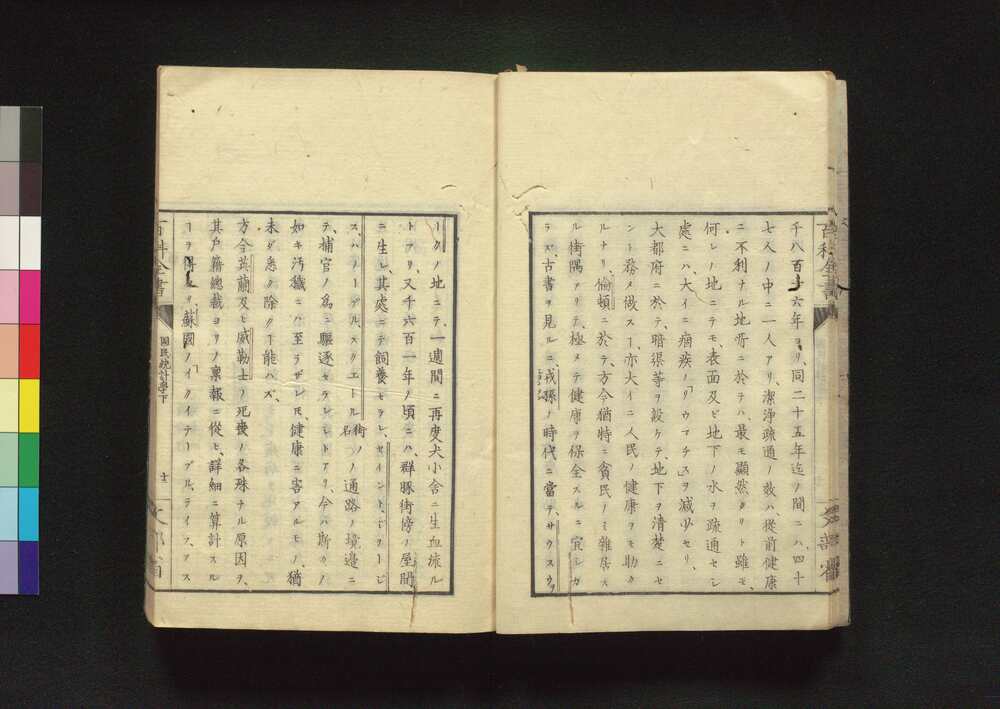 千八百十六年ヨリ、同二十五年迄ノ間ニハ、四十
七人ノ中ニ一人アリ、潔浄疏通ノ效ハ、從前健康
ニ不利ナル地方ニ於テハ、最モ顯然タリト雖モ、
何レノ地ニテモ、表面及ビ地下ノ水ヲ疏通セシ
處ニハ、大イニ痼疾ノ「リウマチス」ヲ減少セリ、
大都府ニ於テ、暗渠等ヲ設ケテ、地下ヲ清楚ニセ
ント務メ做スー、亦大イニ人民ノ健康ヲモ助ク
ルナリ、倫頓ニ於テ、方今猶特ニ貧民ノミ雜居ス
ル街隅アリテ、極メテ健康ヲ保全スルニ宜シカ
ラズ、古書ヲ見ルニ、戎孫ノ時代ニ當テ、サウスウァ
ークノ地ニテ、一週間ニ再度犬小舍ニ生血旅ル
トアリ、又千六百一年ノ頃ニハ、群豚街傍ノ屋間
ニ生レ、其處ニテ飼養セラレ、セイント、ミカージ
ス、ハノーデル、スクエートル街名ノ通路ノ境邊ニ
テ、捕官ノ爲ニ驅逐セラレシトアリ、今ハ斯クノ
如キ汚穢ニハ至ラザレ𪜈、健康ニ害アルモノ、猶
未ダ悉ク除クー能ハズ、
方今英蘭及ビ威勒士ノ死喪ノ各殊ナル原因ヲ、
其戸籍總裁ヨリノ稟報ニ從ヒ、詳細ニ算計スル
ーヲ得タリ、蘇國ノ「イクイテーブル、ライフ、アス
百科全書
國民統計學下
十
文部省